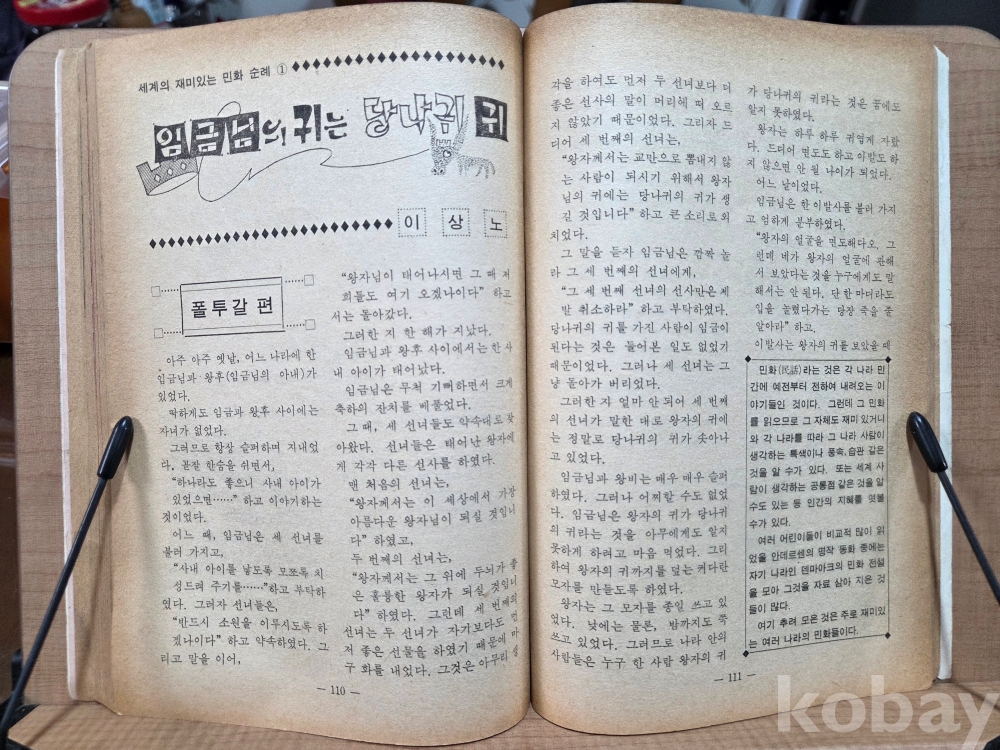 세계의 재미있는 민화 순례 ①
임금님의 귀는 당나귀 귀
이 상 노
폴투갈 편
아주 아주 옛날, 어느 나라에 한
임금님과 왕후(임금님의 아내)가
있었다.
딱하게도 임금과 왕후 사이에는
자녀가 없었다.
그러므로 항상 슬퍼하며 지내었
다. 꼳잘 한숨을 쉬면서,
“하나라도 좋으니 사내 아이가
있었으면……” 하고 이야기하는
것이었다.
어느 때, 임금님은 세 선녀를
불러 가지고,
“사내 아이를 낳도록 모쪼록 치
성드려 주기를……”하고 부탁하
였다. 그러자 선녀들은,
“반드시 소원을 이루시도록 하
겠나이다” 하고 약속하였다. 그
리고 말을 이어,
“왕자님이 태어나시면 그 때 저
희들도 여기 오겠나이다” 하고
서는 돌아갔다.
그러한 지 한 해가 지났다.
임금님과 왕후 사이에서는 한 사
내 아이가 태어났다.
임금님은 무척 기뻐하면서 크게
축하의 잔치를 베풀었다.
그 때, 세 선녀들도 약속대로 찾
아왔다. 선녀들은 태어난 왕자에
게 각각 다른 선사를 하였다.
맨 처음의 선녀는,
“왕자께서는 이 세상에서 가장
아름다운 왕자님이 되실 것입니
다” 하였고,
두 번째의 선녀는,
“왕자께서는 그 위에 두뇌가 좋
은 훌륭한 왕자가 되실 것입니
다” 하였다. 그런데 세 번째의
선녀는 두 선녀가 자기보다도 먼
저 좋은 선물을 하였기 때문에 마
구 화를 내었다. 그것은 아무리 생
— 110 —
각을 하여도 먼저 두 선녀보다 더
좋은 선사의 말이 머리에 떠 오르
지 않았기 때문이었다. 그리자 드
디어 세 번째의 선녀는,
“왕자께서는 교만으로 뽐내지 않
는 사람이 되시기 위해서 왕자
님의 귀에는 당나귀의 귀가 생
길 것입니다” 하고 큰 소리로 외
치었다.
그 말을 듣자 임금님은 깜짝 놀
라 그 세 번째의 선녀에게,
“그 세 번째 선녀의 선사만은 제
발 취소하라” 하고 부탁하였다.
당나귀의 귀를 가진 사람이 임금이
된다는 것은 들어본 일도 없었기
때문이었다. 그러나 세 선녀는 그
냥 돌아가 버리었다.
그러한 자 얼마 안 되어 세 번째
의 선녀가 말한 대로 왕자의 귀에
는 정말로 당나귀의 귀가 솟아나
고 있었다.
임금님과 왕비는 매우 매우 슬퍼
하였다. 그러나 어찌할 수도 없었
다. 임금님은 왕자의 귀가 당나귀
의 귀라는 것을 아무에게도 알지
못하게 하려고 마음 먹었다. 그리
하여 왕자의 귀까지를 덮는 커다란
모자를 만들도록 하였다.
왕자는 그 모자를 종일 쓰고 있
었다. 낮에는 물론, 밤까지도 쭉
쓰고 있었다. 그러므로 나라 안의
사람들은 누구 한 사람 왕자의 귀
가 당나귀의 귀라는 것은 꿈에도
알지 못하였다.
왕자는 하루 하루 귀엽게 자랐
다. 드디어 면도도 하고 이발도 하
지 않으면 안 될 나이가 되었다.
어느 날이었다.
임금님은 한 이발사를 불러 가지
고 엄하게 분부하였다.
“왕자의 얼굴을 면도해다오. 그
런데 네가 왕자의 얼굴에 관해
서 보았다는 것을 누구에게도 말
해서는 안 된다. 단 한 마디라도
입을 놀렸다가는 당장 죽을 줄
알아라” 하고,
이발사는 왕자의 귀를 보았을 때
민화(民話)라는 것은 각 나라 민
간에 예전부터 전하여 내려오는 이
야기들인 것이다. 그런데 그 민화
를 읽으므로 그 자체도 재미 있거니
와 각 나라를 따라 그 나라 사람이
생각하는 특색이나 풍속, 습관 같은
것을 알 수가 있다. 또는 세계 사
람이 생각하는 공통점 같은 것을 알
수도 있는 등 인간의 지혜를 엿볼
수가 있다.
여러 어린이들이 비교적 많이 읽
었을 안데르센의 명작 동화 중에는
자기 나라인 덴마아크의 민화 전설
을 모아 그것을 자료 삼아 지은 것
들이 많다.
여기 추려 모은 것은 주로 재미있
는 여러 나라의 민화들이다.
— 111 —
kobay